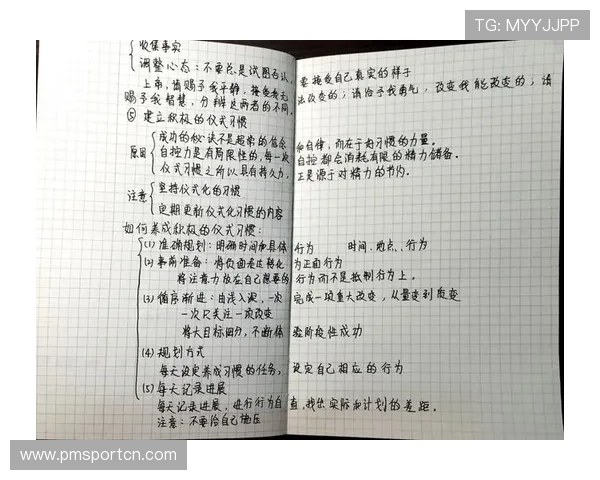 TG: MYYJJPP
收集事实
调整心态：不要总是试图否认，要接受自己真实的样子
上帝，请赐予我平静，接受我无法改变的；请给予我勇气，改变我能改变的；请
赐予我智慧，分辨这两者的不同。
⑤ 建立积极的仪式习惯
原因
成功的秘诀不是超常的信念和自律，而在于好习惯的力量。
自控力是有局限性的，每一次自控都会消耗有限的精力储备。
仪式习惯之所以具有持久力，正是源于对精力的节约。
注意
坚持仪式化的习惯
定期更新仪式化习惯的内容
如何养成积极的仪式习惯：
(1) 准确规划：明确时间和具体行为 时间、地点、行为
(2) 事前准备：将负面表达转化为正面行为
将注意力放在自己想要的行为而不是抵制行为上。
(3) 循序渐进：由浅入深，一次完成一项重大改变，从量变到质变
一次只关注一项改变
将大目标细分，不断体验阶段性成功
(4) 规划方式
每天设定养成习惯的任务，设定自己相应的行为
(5) 每天记录进展
每天记录进展，进行行为自查，找出实际和计划的差距。
注意：不要给自己施压
www.pmsportcn.com